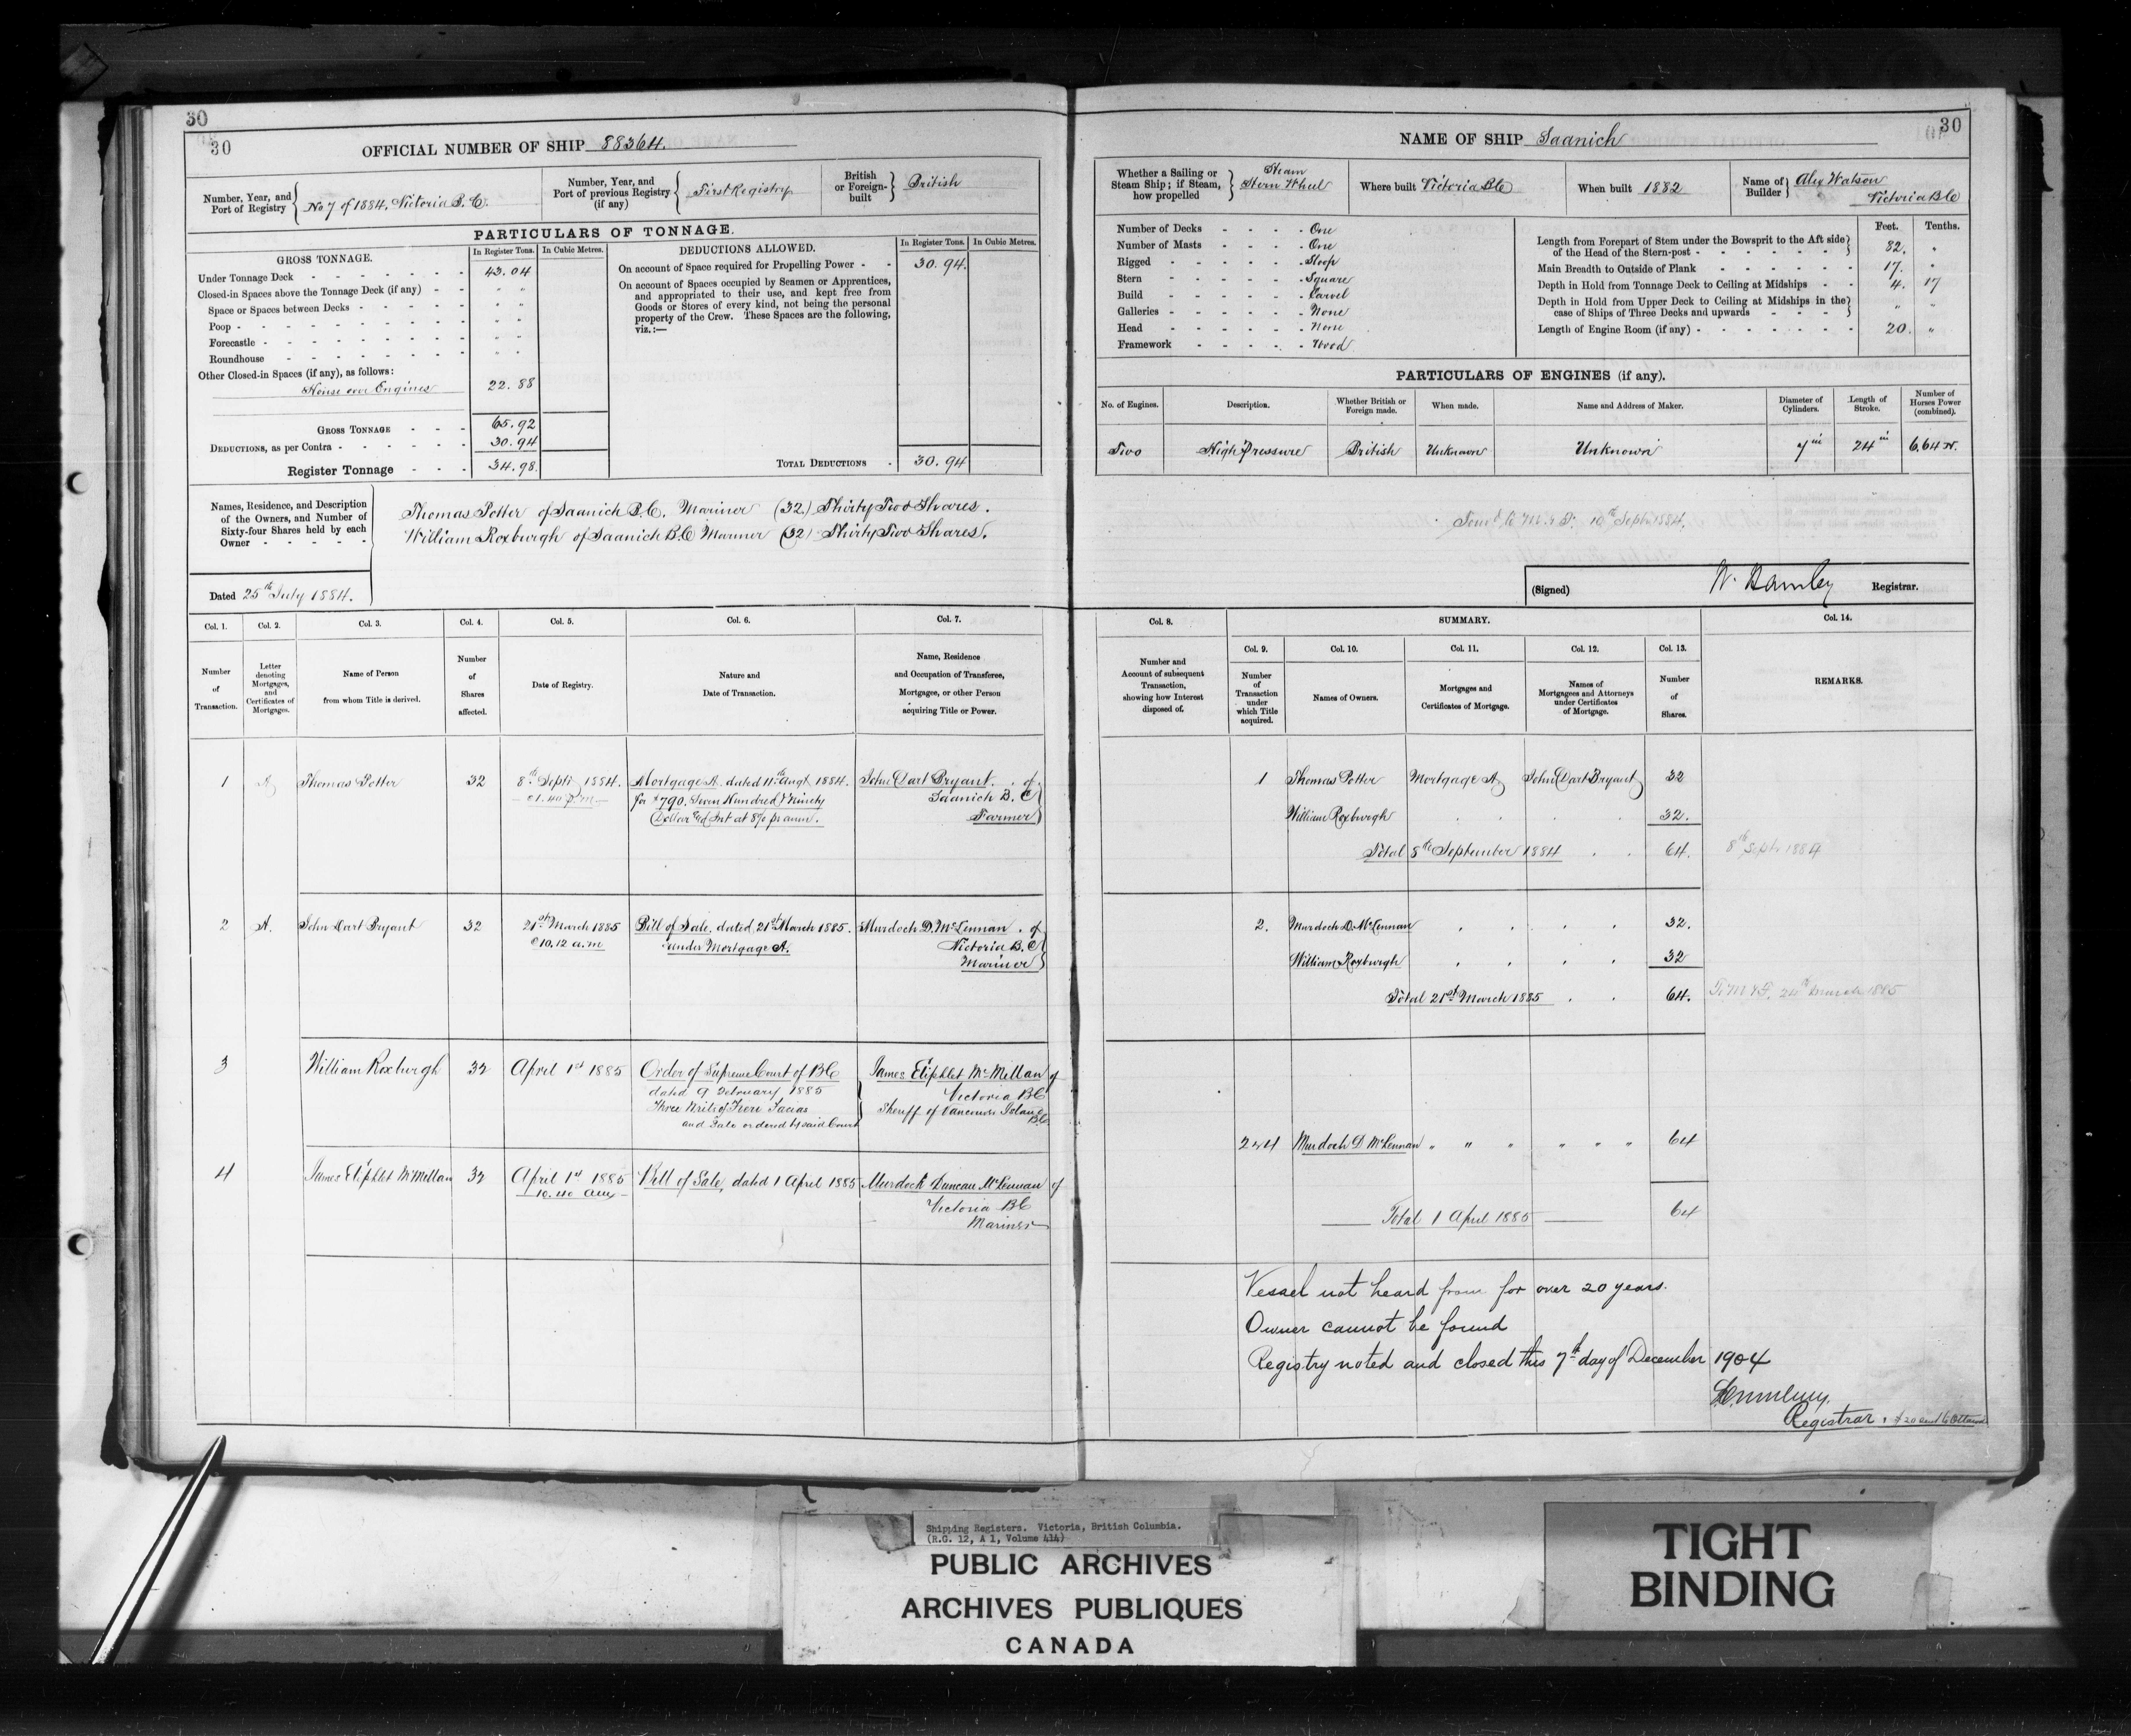 30
30
OFFICIAL NUMBER OF SHIP 88364.
Number, Year, and Port of Registry } No 7 of 1884, Victoria B.C.
Number, Year, and Port of previous Registry (if any) { First Registry
British or Foreign-built } British
PARTICULARS OF TONNAGE.
GROSS TONNAGE. In Register Tons. In Cubic Metres.
Under Tonnage Deck - - - - - - - 43.04
Closed-in Spaces above the Tonnage Deck (if any) - - " "
Space or Spaces between Decks - - - - - " "
Poop - - - - - - - - - " "
Forecastle - - - - - - - - " "
Roundhouse - - - - - - - " "
Other Closed-in Spaces (if any), as follows:
House over Engines 22.88
GROSS TONNAGE - - - 65.92
DEDUCTIONS, as per Contra - - - - - - 30.94
Register Tonnage - - - 34.98.
DEDUCTIONS ALLOWED. In Register Tons. In Cubic Metres.
On account of Space required for Propelling Power - - 30.94.
On account of Spaces occupied by Seamen or Apprentices,
and appropriated to their use, and kept free from
Goods or Stores of every kind, not being the personal
property of the Crew. These Spaces are the following,
viz.:—
TOTAL DEDUCTIONS - 30.94
Names, Residence, and Description
of the Owners, and Number of
Sixty-four Shares held by each
Owner - - - - -
Thomas Potter of Saanich B.C. Mariner (32) Thirty Two Shares.
William Roxburgh of Saanich B.C. Mariner (32) Thirty Two Shares.
Dated 25th July 1884.
Col. 1. Col. 2. Col. 3. Col. 4. Col. 5. Col. 6. Col. 7.
Number of Transaction.
Letter denoting Mortgages, and Certificates of Mortgages.
Name of Person from whom Title is derived.
Number of Shares affected.
Date of Registry.
Nature and Date of Transaction.
Name, Residence and Occupation of Transferee, Mortgagee, or other Person acquiring Title or Power.
1 A Thomas Potter 32 8th Septr 1884. Mortgage A. dated 11th Augt 1884. John Dart Bryant. of
@ 1.40 p.m. for $790. Seven Hundred & Ninety Saanich B.C.
Dollars and Int at 8% pr anm. Farmer
2 A. John Dart Bryant 32 21st March 1885 Bill of Sale, dated 21st March 1885. Murdoch D. McLennan. of
@ 10.12 a.m under Mortgage A. Victoria B.C.
Mariner
3 William Roxburgh 32 April 1st 1885 Order of Supreme Court of BC James Eliphlet McMillan of
dated 9 February 1885 Victoria BC
Three Writs of Fieri Facias Sheriff of Vancouver Island
and Sale ordered by said Court B.C.
4 James Eliphlet McMillan 32 April 1st 1885 Bill of Sale, dated 1 April 1885 Murdoch Duncan McLennan of
10.40 am Victoria BC
Mariner
30
NAME OF SHIP Saanich
Whether a Sailing or Steam Ship; if Steam, how propelled } Steam Stern Wheel
Where built Victoria B.C
When built 1882
Name of Builder } Alex Watson
Victoria B.C
Number of Decks - - - - One
Number of Masts - - - - One
Rigged - - - - - Sloop
Stern - - - - - Square
Build - - - - - Carvel
Galleries - - - - - None
Head - - - - - None
Framework - - - - - Wood
Feet. Tenths.
Length from Forepart of Stem under the Bowsprit to the Aft side
of the Head of the Stern-post - - - - - - 82. "
Main Breadth to Outside of Plank - - - - - - 17. "
Depth in Hold from Tonnage Deck to Ceiling at Midships - - 4. 17
Depth in Hold from Upper Deck to Ceiling at Midships in the
case of Ships of Three Decks and upwards - - - " "
Length of Engine Room (if any) - - - - - - - 20. "
PARTICULARS OF ENGINES (if any).
No. of Engines. Description. Whether British or Foreign made. When made. Name and Address of Maker. Diameter of Cylinders. Length of Stroke. Number of Horses Power (combined).
Two High Pressure British Unknown Unknown 7 in 24 in 6,64 N.
10th Septr 1884.
(Signed) W. Hamley Registrar.
Col. 8. SUMMARY. Col. 14.
Col. 9. Col. 10. Col. 11. Col. 12. Col. 13.
Number and Account of subsequent Transaction, showing how Interest disposed of.
Number of Transaction under which Title acquired.
Names of Owners.
Mortgages and Certificates of Mortgage.
Names of Mortgagees and Attorneys under Certificates of Mortgage.
Number of Shares.
REMARKS.
1 Thomas Potter Mortgage A John Dart Bryant 32
William Roxburgh 32.
Total 8th September 1884 64. 8th Septr 1884
2. Murdoch D. McLennan 32.
William Roxburgh 32
Total 21st March 1885 64. To M & F. 24th March 1885
2 & 4 Murdoch D. McLennan " " " " " " 64
Total 1 April 1885 64
Vessel not heard from for over 20 years.
Owner cannot be found
Registry noted and closed this 7th day of December 1904
Registrar.
Shipping Registers. Victoria, British Columbia.
(R.G. 12, A 1, Volume 414)
PUBLIC ARCHIVES
ARCHIVES PUBLIQUES
CANADA
TIGHT
BINDING